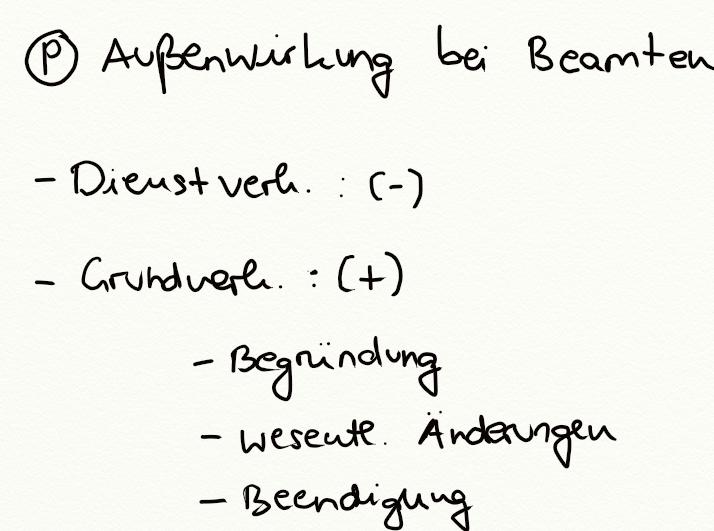 Ⓟ Außenwirkung bei Beamten
- Dienstverh. : (-)
- Grundverh. : (+)
- Begründung
- wesentl. Änderungen
- Beendigung